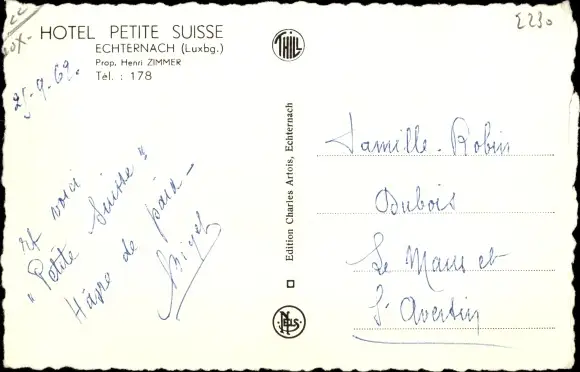 HOTEL PETITE SUISSE
ECHTERNACH (Luxbg.)
Prop. Henri ZIMMER
Tél. : 178
£230
25-9-62.
Et voici
"Petite Suisse"
Hâvre de paix -
THILL
Edition Charles Artois, Echternach
NELS
Famille - Robin
Dubois
Le Mans et
St Avertin